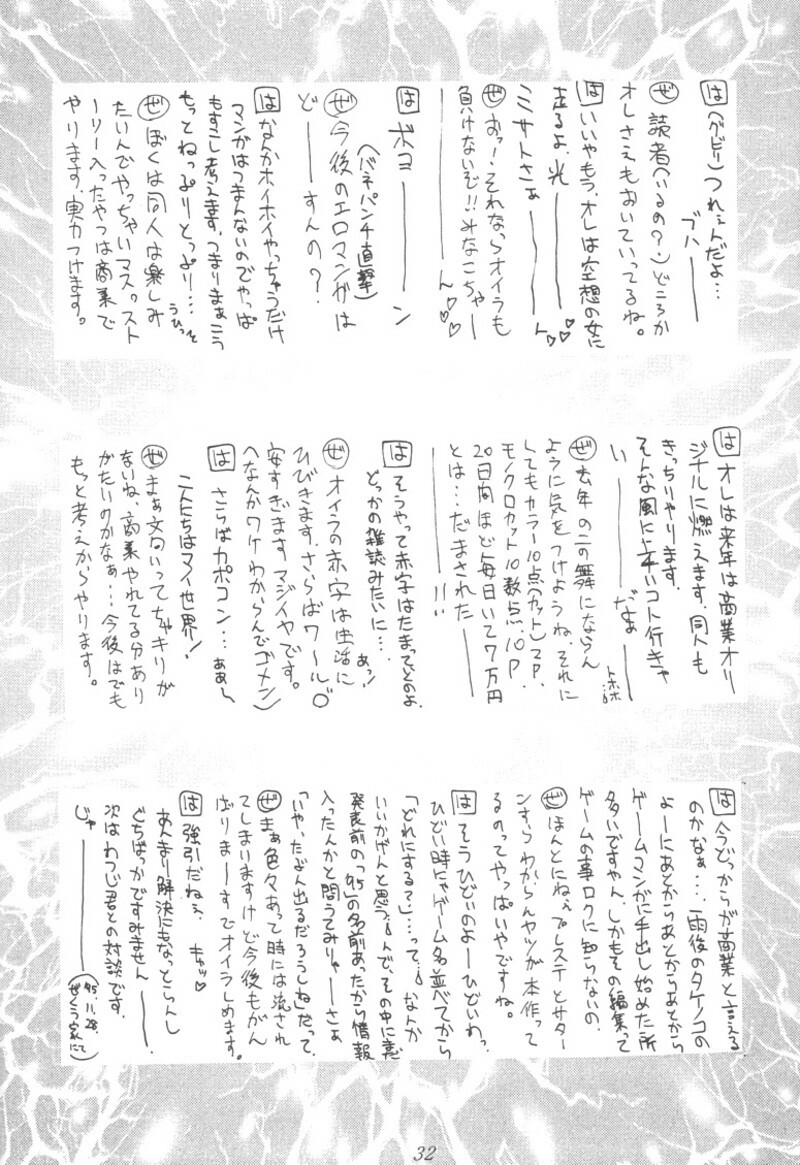 は (グビリ) つれぇんだよ…
ブハ――――
ぜ 読者(いるの?)どころか
オレさえもおいていってるね。
は いいやもう、オレは空想の女に
走るよ、光――――ん♡♡
ミサトさぁ――――ん♡♡
ぜ おっ!それならオイラも
負けないぞ!!みなこちゃー
――――ん♡♡
は ボコ――――ン
(バネパンチ直撃)
ぜ 今後のエロマンガは
ど――すんの?
は なんかホイホイやっちゃうだけ
マンガはつまんないのでやっぱ
もすこし考えます。つまりまぁこう
もっとねっぷりとっぷり…うひっっと
ぜ ぼくは同人は楽しみ
たいんでやっちゃいマス。スト
ーリー入ったやつは商業で
やります、実力つけます。
は オレは来年は商業オリ
ジナルに燃えます、同人も
きっちりやります。
そんな風に上手いコト行きゃ
い――――だよ―――トホホ…
ぜ 去年の二の舞にならん
ように気をつけようね、それに
してもカラー10点(カット)2P、
モノクロカット10数点、10P
20日間ほど毎日いて7万円
とは…だまされた――
――――!!
は そうやって赤字はたまってくのよ、
どっかの雑誌みたいに…
あっ!
ぜ オイラの赤字は生活に
ひびきます、さらばワールド
安すぎます マジイヤです。
(なんかワケわからんでゴメン)
は さらばカポコン…ああ〜
こんにちはマイ世界!
ぜ まぁ文句いっててもキリが
ないね、商業やれてる分あり
がたいのかなぁ…今後はでも
もっと考えからやります。
は 今どっからが商業と言える
のかなぁ…、雨後のタケノコの
よーにあとからあとからあとから
ゲームマンガに手出し始めた所
多いですやん、しかもその編集って
ゲームの事ロクに知らないの、
ぜ ほんとにねぇプレステとサター
ンすらわからんヤツが本作って
るのってやっぱいやですね。
は そうひどいのよーひどいわっ
ひどい時にゃゲーム名並べてから
「どれにする?」…って…。なんか
いいかげんと思う。んで、その中に意
発表前の「'95」の名前あったから情報
入ったんかと問うてみりゃーさぁ
「いや、たぶん出るだろうしね」だって、
ぜ まぁ色々あって時には流され
てしまいますけど今後もがん
ばりまーすでオイラしめます。
は 強引だねぇ、キャッ♡
あんまり解決にもなっとらんし
ぐちばっかですみません――――。
次はわつじ君との対談です。
じゃ――――
('95.11.28. ぜくう家にて)
32